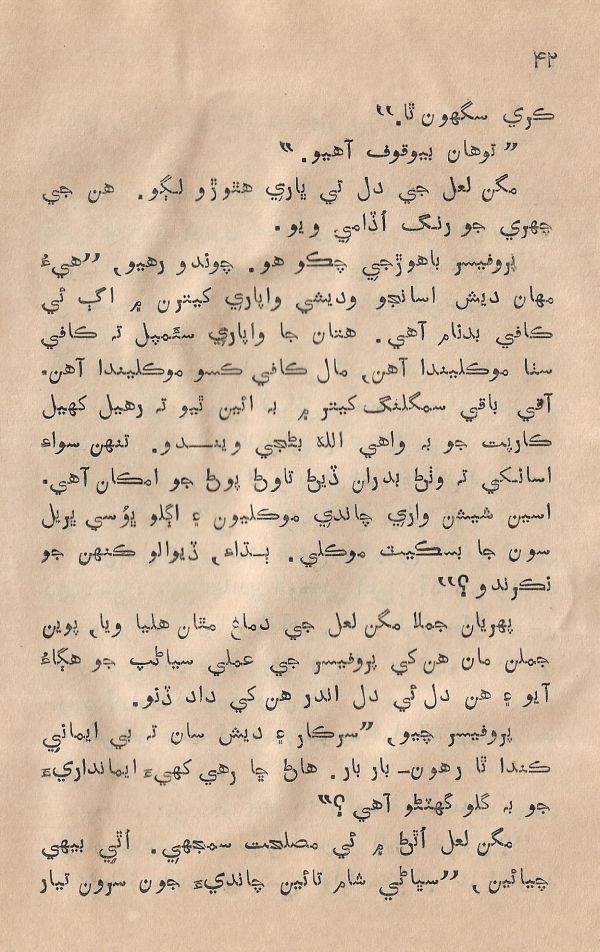 ۴۲
ڪري سگھون ٿا.”
”توهان بيوقوف آهيو.”
مگن لعل جي دل تي ڀاري هٿوڙو لڳو. هن جي
چهري جو رنگ اُڏامي ويو.
پروفيسر باهوڙجي چڪو هو. چوندو رهيو, ”هيءُ
مهان ديش اسانجو وديشي واپاري کيترن ۾ اڳ ئي
ڪافي بدنام آهي. هتان جا واپاري سئمپل تہ ڪافي
سٺا موڪليندا آهن, مال ڪافي ڪسو موڪليندا آهن.
آئي باقي سمگلنگ کيتر ۾ بہ ائين ٿيو تہ رهيل کهيل
ڪارپت جو بہ واهي الله بڻجي ويندو. تنهن سواءِ
اسانکي تہ وٺڻ بدران ڏيڻ تاوڻ پوڻ جو امڪان آهي.
اسين شيشن واري چاندي موڪليون ۽ اڳلو ڀؤسي ڀريل
سون جا بسڪيٽ موڪلي. ٻڌاءِ, ڏيوالو ڪنهن جو
نڪرندو؟”
پهريان جملا مگن لعل جي دماغ مٿان هليا ويا, پوين
جملن مان هن کي پروفيسر جي عملي سياڻپ جو هڳاءُ
آيو ۽ هن دل ئي دل اندر هن کي داد ڏنو.
پروفيسر چيو, ”سرڪار ۽ ديش سان تہ بي ايماني
ڪندا ٿا رهون- بار بار. هاڻ ڇا رهي کهيءَ ايمانداريءَ
جو بہ گلو گھٽڻو آهي؟”
مگن لعل اُٿڻ ۾ ئي مصلحت سمجھي. اُٿي بيهي
چيائين, ”سڀاڻي شام تائين چانديءَ جون سرون تيار